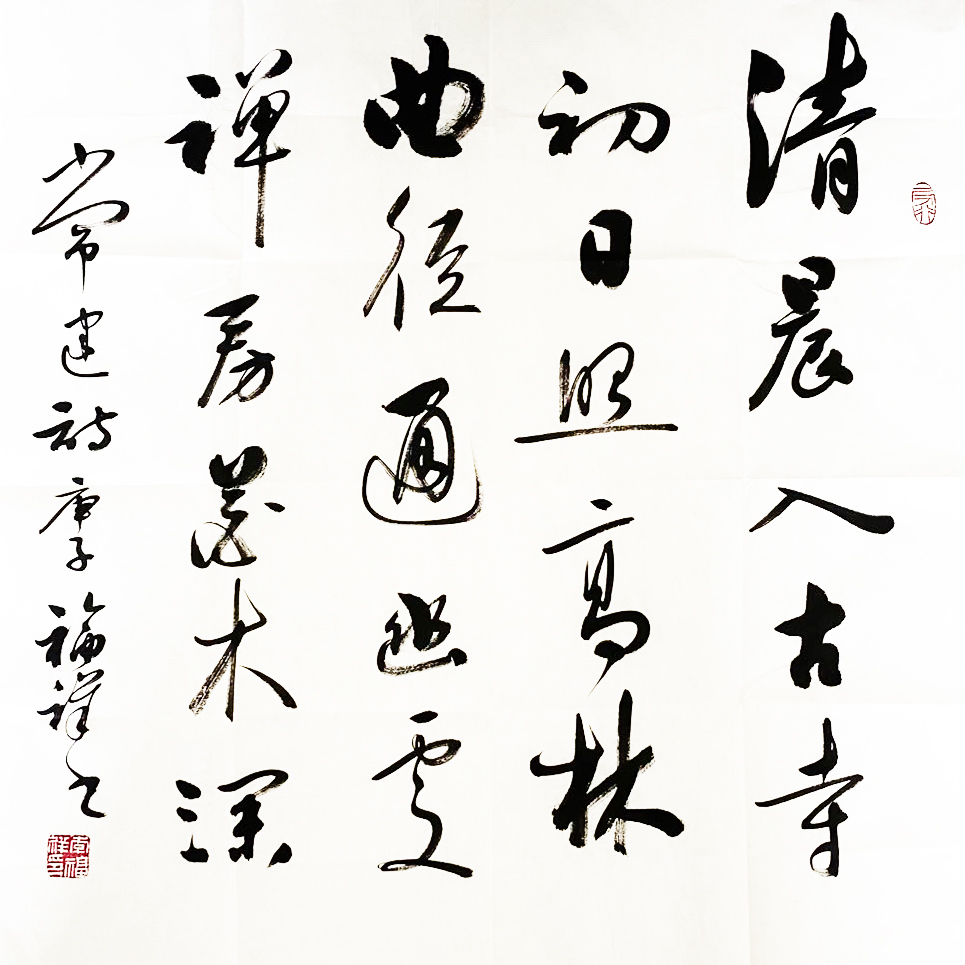 清晨入古寺
初日照高林
曲径通幽处
禅房花木深
常建诗庚子福祥书